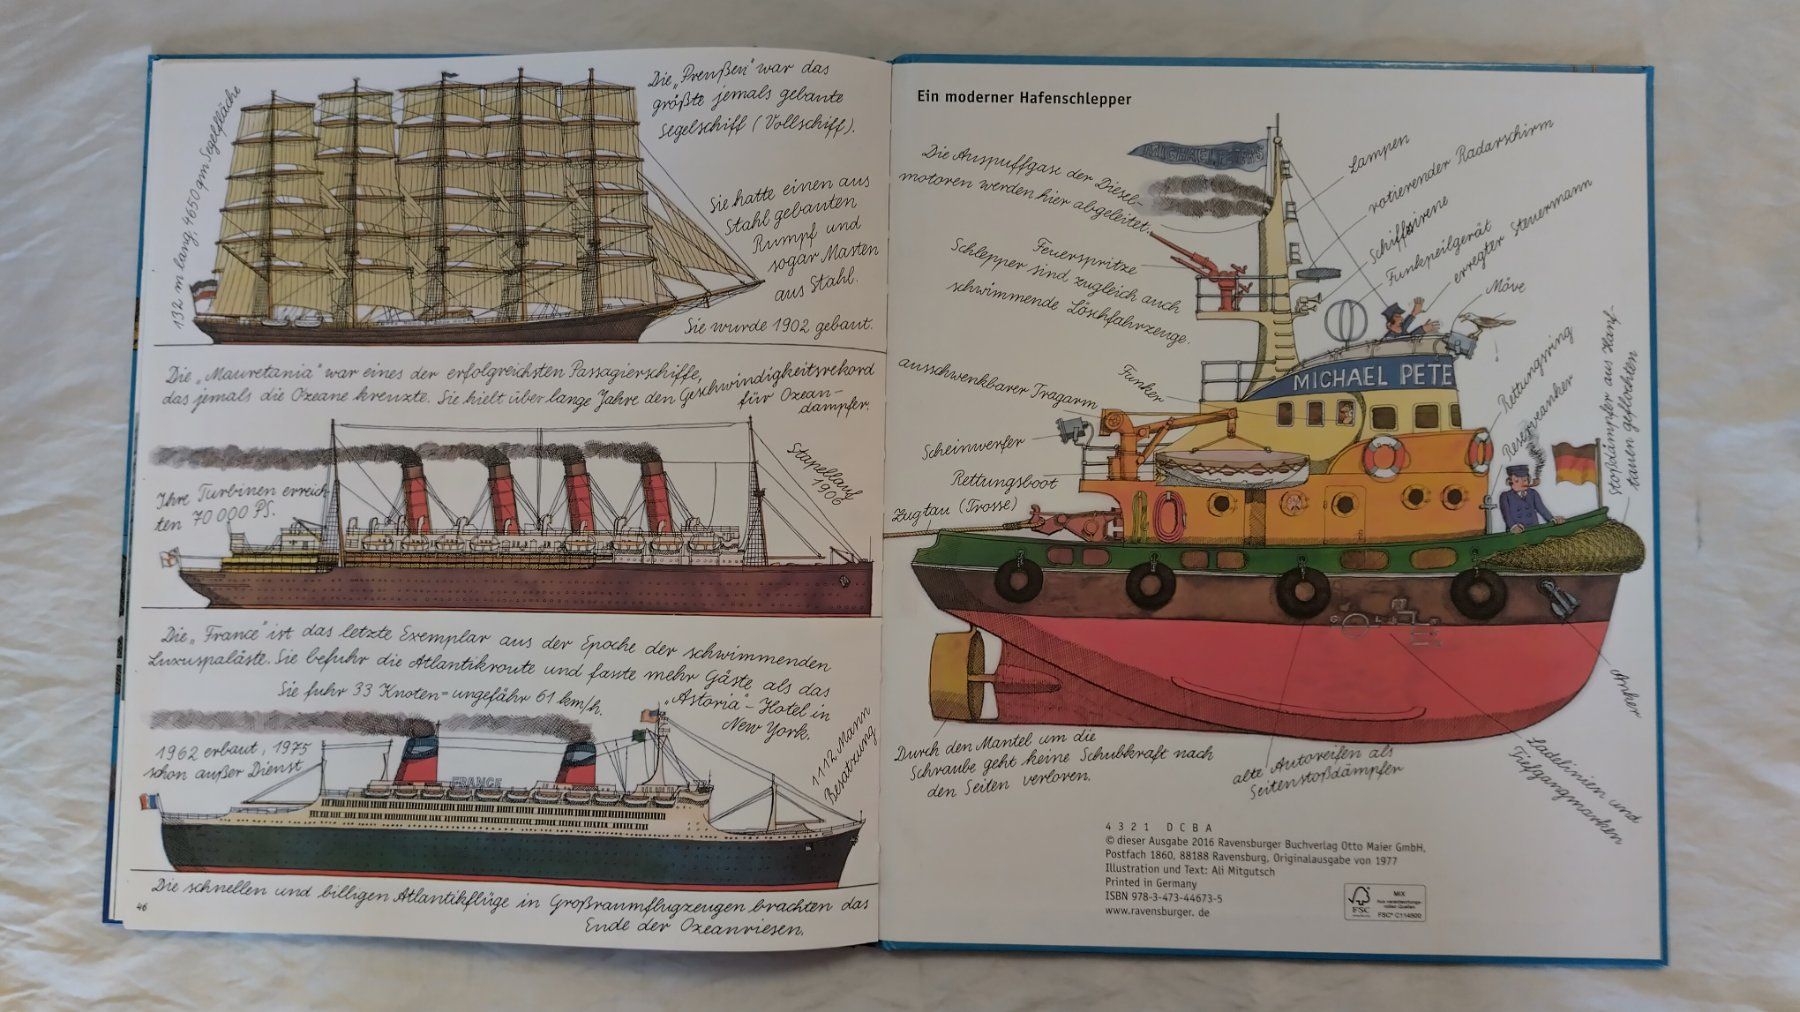 Die „Preußen" war das
größte jemals gebaute
Segelschiff (Vollschiff).
132 m lang, 4650 qm Segelfläche
Sie hatte einen aus
Stahl gebauten
Rumpf und
sogar Masten
aus Stahl.
Sie wurde 1902 gebaut.
Die „Mauretania" war eines der erfolgreichsten Passagierschiffe,
das jemals die Ozeane kreuzte. Sie hielt über lange Jahre den Geschwindigkeitsrekord
für Ozean-
dampfer.
Stapellauf
1906
Ihre Turbinen erreich-
ten 70 000 PS.
Die „France" ist das letzte Exemplar aus der Epoche der schwimmenden
Luxuspaläste. Sie befuhr die Atlantikroute und fasste mehr Gäste als das
„Astoria"-Hotel in
New York.
Sie fuhr 33 Knoten = ungefähr 61 km/h.
1962 erbaut, 1975
schon außer Dienst
1112 Mann
Besatzung
FRANCE
Die schnellen und billigen Atlantikflüge in Großraumflugzeugen brachten das
Ende der Ozeanriesen.
46
Ein moderner Hafenschlepper
Die Auspuffgase der Diesel-
motoren werden hier abgeleitet.
MICHAEL PETERS
Lampen
rotierender Radarschirm
Schiffssirene
Funkpeilgerät
erregter Steuermann
Möve
Feuerspritze
Schlepper sind zugleich auch
schwimmende Löschfahrzeuge.
ausschwenkbarer Tragarm
Funker
MICHAEL PETE
Rettungsring
Reserveanker
Stoßdämpfer aus Hanf-
tauen geflochten
Scheinwerfer
Rettungsboot
Zugtau (Trosse)
Anker
Durch den Mantel um die
Schraube geht keine Schubkraft nach
den Seiten verloren.
alte Autoreifen als
Seitenstoßdämpfer
Ladelinien und
Tiefgangmarken
4 3 2 1 D C B A
© dieser Ausgabe 2016 Ravensburger Buchverlag Otto Maier GmbH,
Postfach 1860, 88188 Ravensburg, Originalausgabe von 1977
Illustration und Text: Ali Mitgutsch
Printed in Germany
ISBN 978-3-473-44673-5
www.ravensburger.de
FSC
MIX
Aus verantwortungs-
vollen Quellen
FSC® C114800